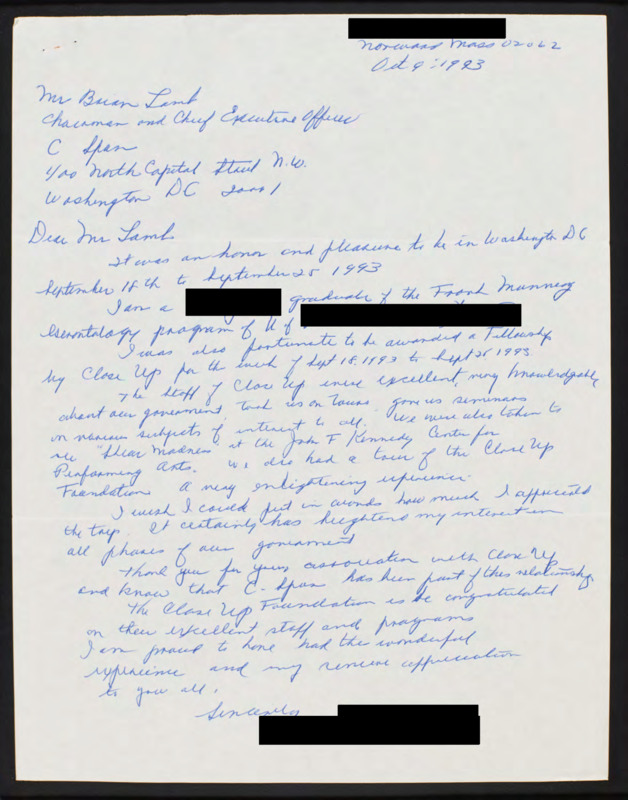 Norwood Mass 02062
Oct 9, 1993
Mr Brian Lamb
Chairman and Chief Executive Officer
C Span
400 North Capital Street N.W.
Washington DC 20001
Dear Mr Lamb
It was an honor and pleasure to be in Washington DC
September 18th to September 25 1993
I am a graduate of the Frank Manning
Gerontology program of U of
I was also fortunate to be awarded a Fellowship
by Close Up for the week of Sept 18, 1993 to Sept 25 1993
The Staff of Close Up were excellent, very knowledgable
about our government, took us on tours gave us seminars
on various subjects of interest to all. We were also taken to
see "Shear Madness" at the John F Kennedy Center for
Performing Arts. We also had a tour of the Close Up
Foundation A very enlightening experience.
I wish I could put in words how much I appreciated
the trip. It certainly has heightened my interest in
all phases of our government
Thank you for your association with Close Up
and know that C-Span has been part of this relationship
The Close Up Foundation is to be congratulated
on their excellent staff and programs
I am proud to have had this wonderful
experience and my sincere appreciation
to you all.
Sincerely